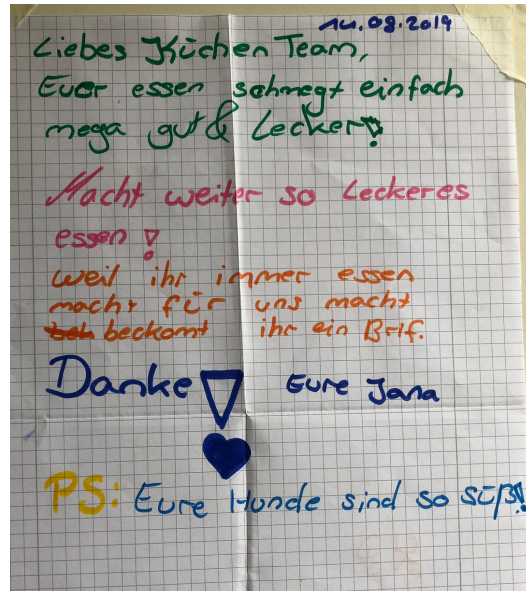 14.08.2019
Liebes Küchen Team,
Euer essen schmegt einfach
mega gut & Lecker!
Macht weiter so Leckeres
essen !
weil ihr immer essen
macht für uns macht
beckomt ihr ein Brif.
Danke ! Eure Jana
PS: Eure Hunde sind so süß!